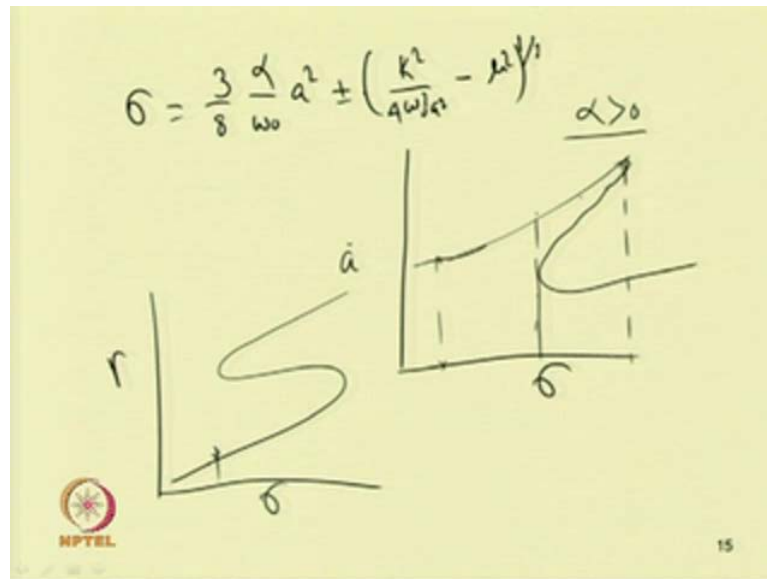 σ = 3/8 α/ω₀ a² ± (K²/4ω₀²a² - μ²)^1/2
α>0
ȧ
r
σ
σ
NPTEL
15